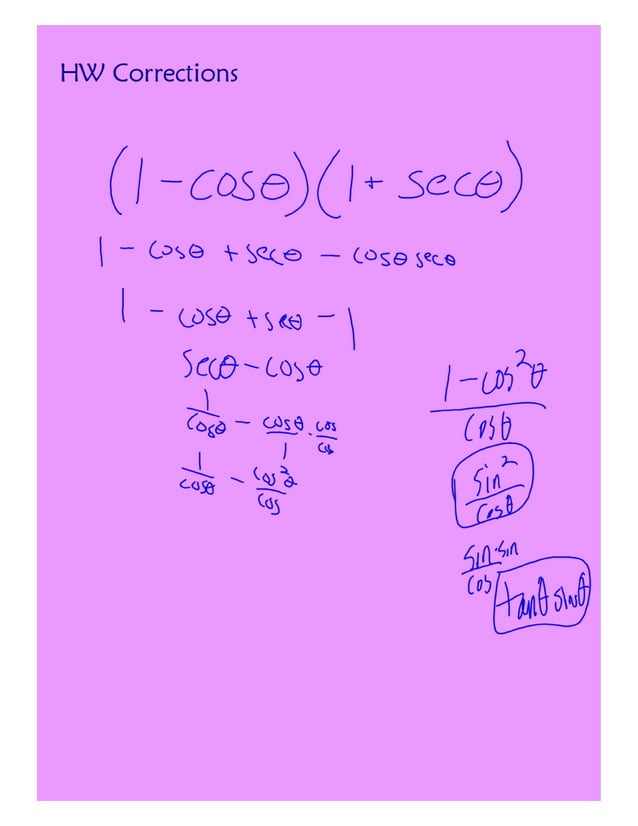 HW Corrections
(1 - cosθ)(1 + secθ)
1 - cosθ + secθ - cosθ secθ
1 - cosθ + secθ - 1
secθ - cosθ
1/cosθ - cosθ/1 · cos/cos
1/cosθ - cos²θ/cos
1 - cos²θ/cosθ
sin²/cosθ
sin·sin/cos
tanθ sinθ